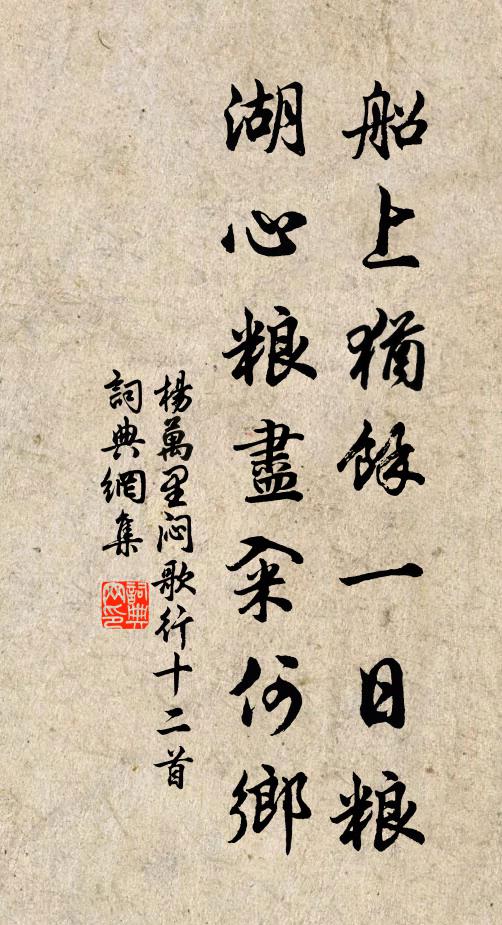 船上猶餘一日粮
湖心粮盡籴何鄉
楊萬里闷歌行十二首
詞典網集
詞典
网印